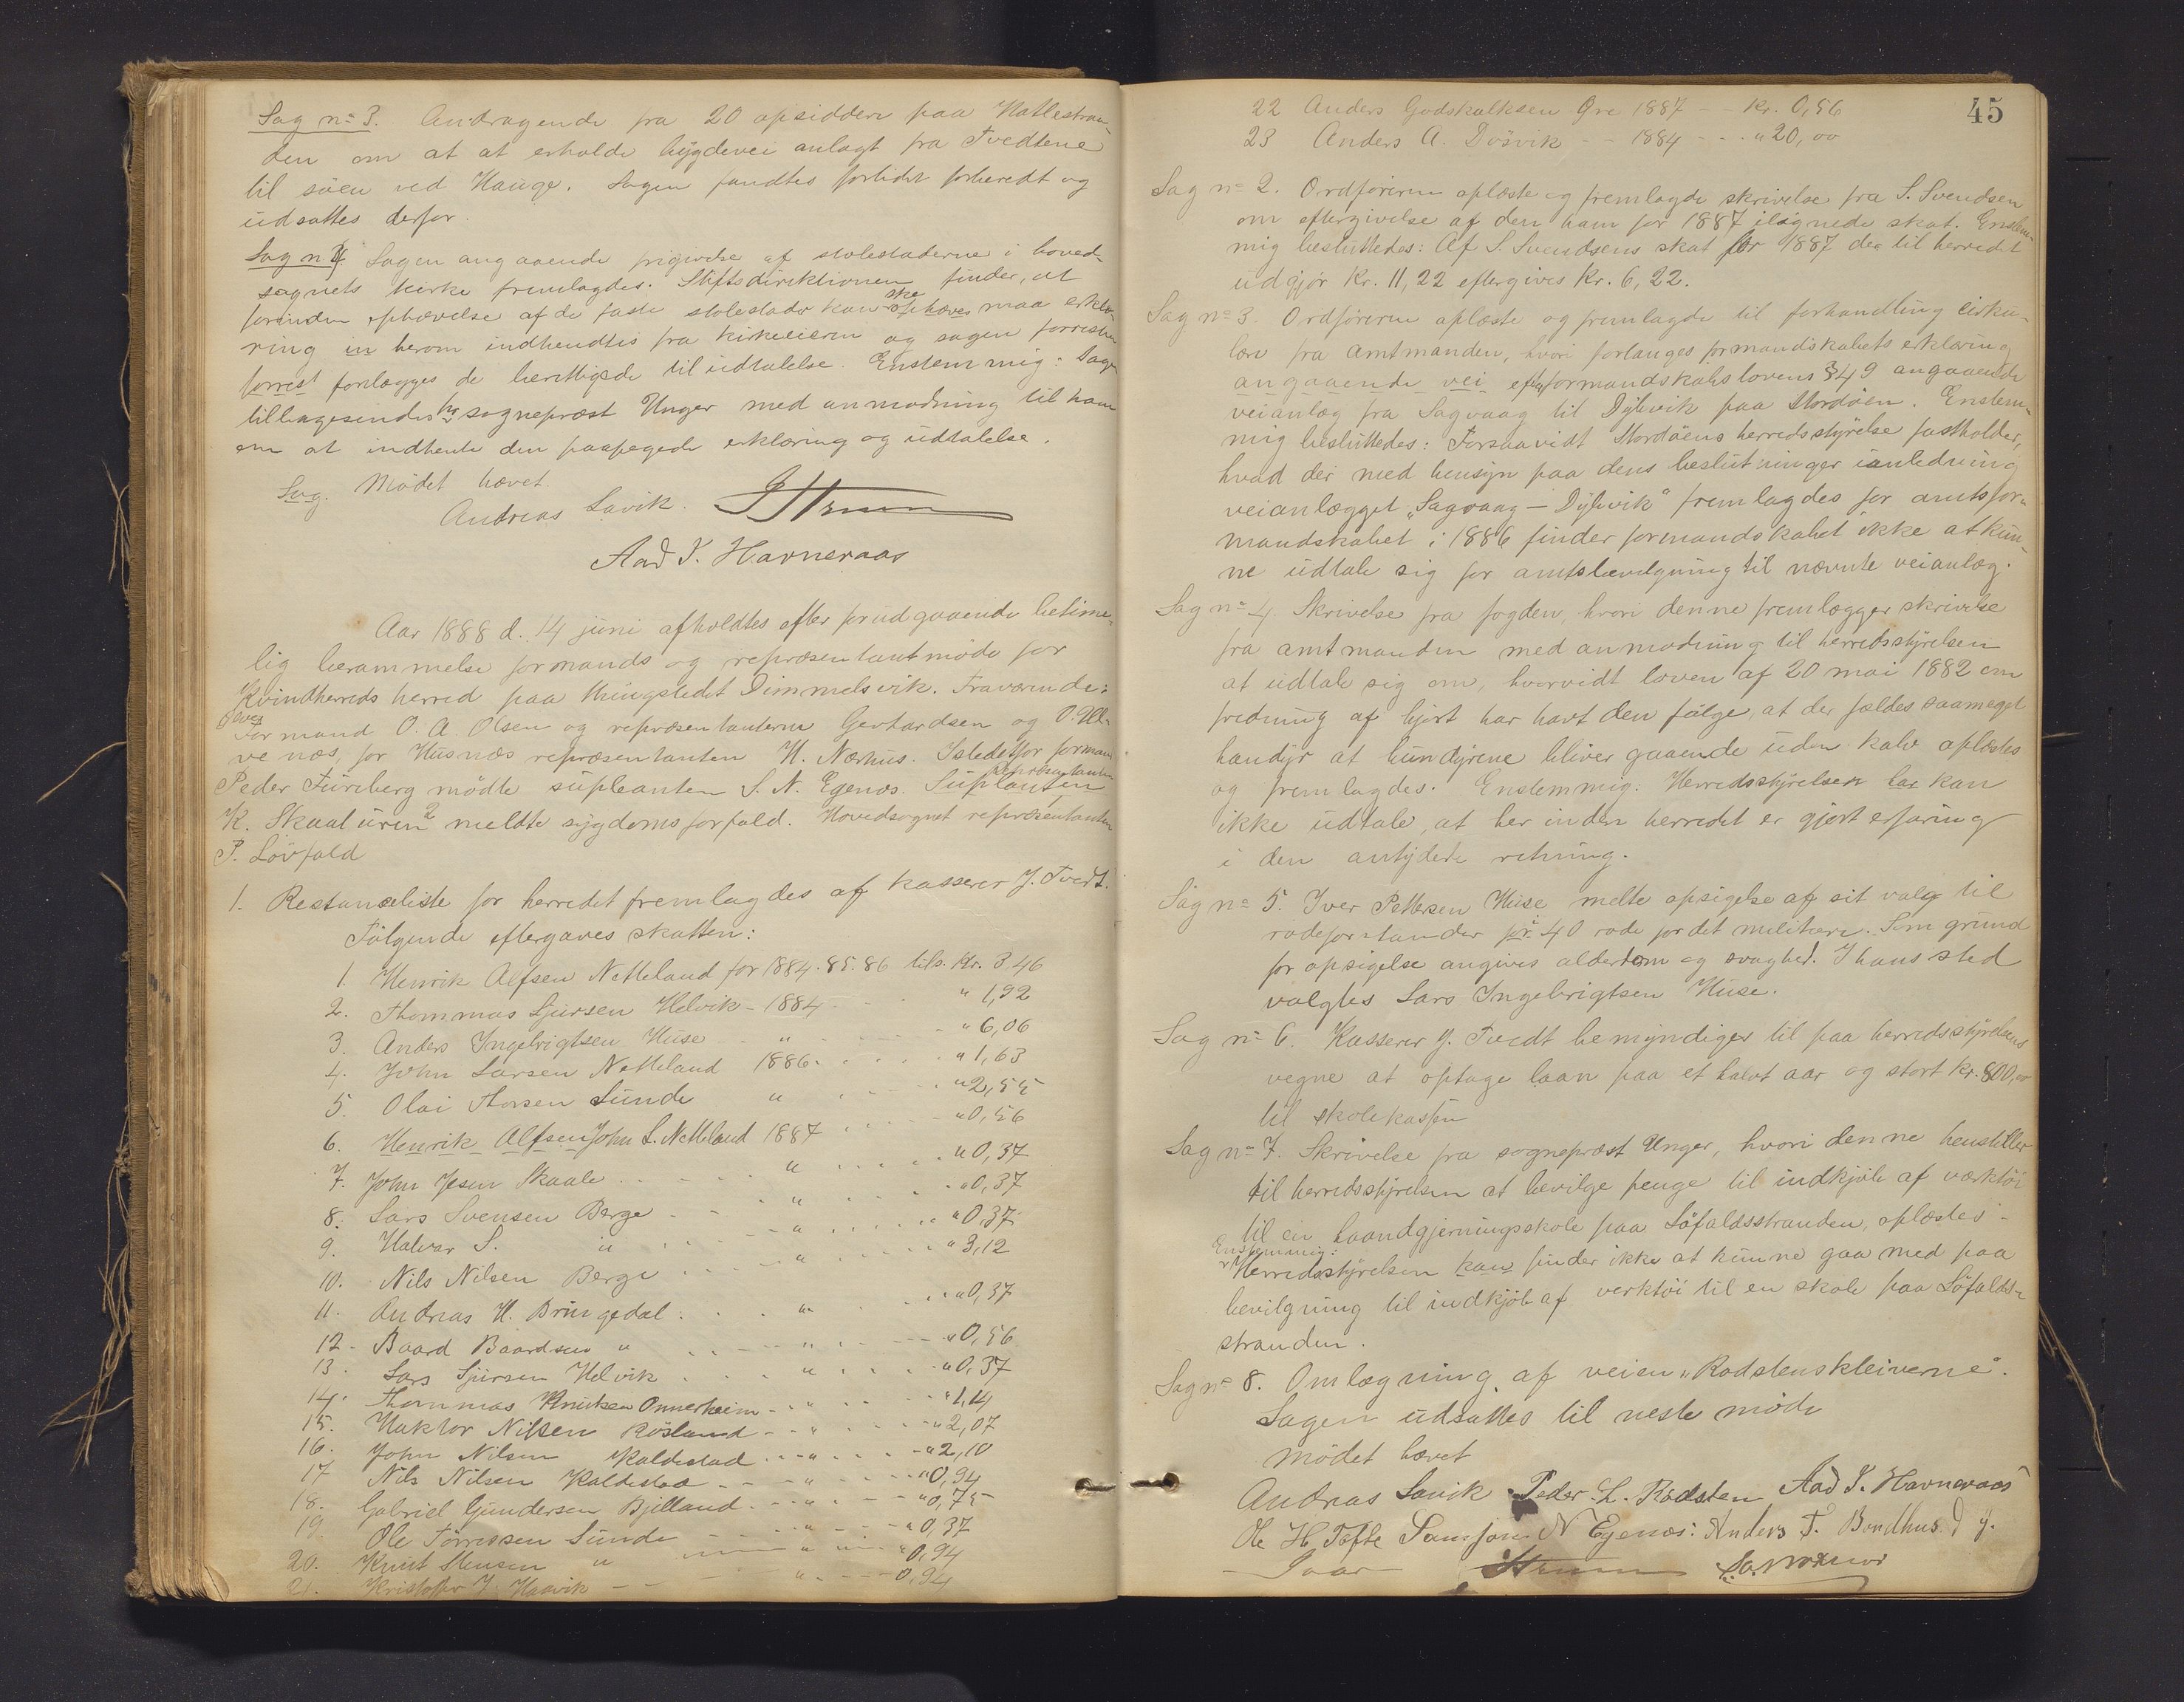 Sag no 3. Andragende fra 20 opsiddere paa Hatlestran-
den om at at erholde bygdevei anlagt fra Tvedtene
til söen ved Hauge. Sagen fandtes forlidet forberedt og
udsattes derfor.
Sag n 4. Sagen angaaende frigivelse af stolestaderne i hoved-
sognets kirke fremlagdes. Stiftsdirektionen finder, at
forinden ophævelse af de faste stolestader kan ske ophæves maa erklæ-
ring in herom indhendtes fra kirkeeieren og sagen forresten
forrest forelægges de berettigede til udtalelse. Enstemmig: Sagen
tilbagesendes hr sogneprest Unger med anmodning til ham
om at indhente den paapegede erklæring og udtalelse.
Sag. Mödet hævet.
Andreas Savik.
Aad I. Havneraas
Aar 1888 d. 14 juni afholdtes efter forudgaaende betime-
lig berammelse formands og repræsentantmöde for
Kvindherreds herred paa thingstedet Dimmelsvik. Fraværende:
formand O. A. Olsen og repræsentanterne Gerhardsen og O. Ul-
ve næs, for Husnæs repræsentanten H. Nærhus. Istedetfor formand
Peder Furuberg mödte supleanten S. N. Egenæs. Suplanten repræsentanten
K. Skaaluren 2 meldte sygdomsforfald. Hovedsognet repræsentanten
P. Lövfald
1. Restanceliste for herredet fremlagdes af kasserer J. Tvedt.
Fölgende eftergaves skatten:
1. Henrik Alfsen Netteland for 1884. 85. 86 tils. Kr. 3 46
2. Thommas Sjursen Helvik - 1884 - " 1,92
3. Anders Ingebrigtsen Huse " - " 6,06
4. John Larsen Netteland 1886 - " 1,63
5. Olai Thorsen Sunde " " 2,55
6. Henrik Alfsen John L. Netteland 1887 " 0,56
7. John Jesen Skaale " " 0,37
8. Lars Svensen Berge - " " 0,37
9. Halvar S. " " " 0,37
10. Nils Nilsen Berge " " 3,12
11. Andreas H. Bringedal " " 0,37
12. Baard Baardsen " " " 0,56
13. Lars Sjursen Helvik " " 0,37
14. Thommas Knutsen Onnerheim - " " 1,14
15. Haktor Nilsen Rösland - " " 2,07
16. John Nilsen Kaldestad - " " 2,10
17 Nils Nilsen Kaldestad - " " 0,94
18. Gabriel Gundersen Bjelland - " " 0,75
19. Ole Törressen Sunde " " 0,37
20. Knut Stensen " " " 0,94
21. Kristofer J. Haavik - " 0,94
45
22 Anders Godskalksen Öre 1887 Kr. 0,56
23 Anders A. Dösvik - 1884 - " 20,00
Sag no 2. Ordföreren oplæste og fremlagde skrivelse fra S. Svendsen
om eftergivelse af den ham for 1887 ilignede skat. Enstem-
mig besluttedes: Af S. Svendsens skat for 1887 der til herredet
udgjör Kr. 11,22 eftergives Kr. 6,22.
Sag no 3. Ordföreren oplæste og fremlagde til forhandling cirku-
lære fra amtmanden, hvori forlanges formandskabets erklæring
angaaende vei efter formandskabslovens § 49 angaaende
veianlæg fra Sagvaag til Dybvik paa Stordöen. Enstem-
mig besluttedes: Forsaavidt Stordöens herredsstyrelse fastholder,
hvad der med hensyn paa dens beslutninger ianledning
veianlægget „Sagvaag – Dybvik" fremlagdes for amtsfor-
mandskabet i 1886 finder formandskabet ikke at kun-
ne udtale sig for amtsbevilgning til nævnte veianlæg.
Sag no 4. Skrivelse fra fogden, hvori denne fremlægger skrivelse
fra amtmanden med anmodning til herredsstyrelsen
at udtale sig om, hvorvidt loven af 20 mai 1882 om
fredning af hjort har havt den fölge, at der fældes saameget
handyr at hundyrene bliver gaaende uden kalv oplæstes
og fremlagdes. Enstemmig: Herredsstyrelsen har kan
ikke udtale, at her inden herredet er gjort erfaring
i den antydede retning.
Sag no 5. Iver Pettersen Huse melte opsigelse af sit valg til
rodeforstander for 40 rode for det militære. Som grund
for opsigelse angives alderdom og svaghed. I hans sted
valgtes Lars Ingebrigtsen Huse.
Sag no 6. Kasserer J. Tvedt bemyndiges til paa herredsstyrelsens
vegne at optage laan paa et halvt aar og stort kr. 800,00
til skolekassen
Sag no 7. Skrivelse fra sogneprest Unger, hvori denne henstiller
til herredsstyrelsen at bevilge penge til indkjöb af værktöi
til en haandgjerningsskole paa Löfaldsstranden, oplæstes -
Enstemmig:
Herredsstyrelsen kan finder ikke at kunne gaa med paa
bevilgning til indkjöb af verktöi til en skole paa Löfalds-
stranden.
Sag no 8. Omlægning af veien „Rodstenskleiverne".
Sagen udsattes til neste möde
Mödet hævet
Andreas Savik Peder L. Rödsten Aad I. Havneraas
Ole H. Tofte Samson N Egenæs: Anders T. Bondhus d y.
Ivar